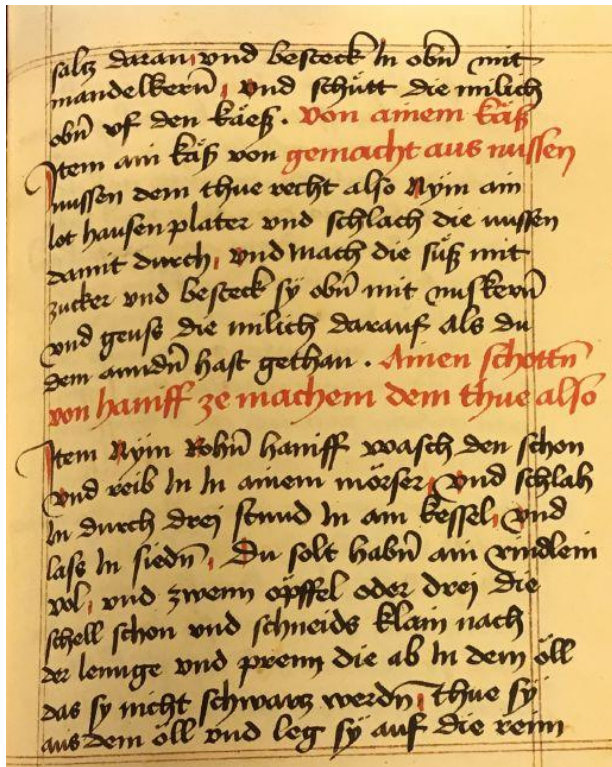 saltz daran, vnd besteck In obn̄ mit
mandelkern̄, vnd schütt die milich
obn̄ vf den käeß. Von ainem käß
Item ain käß von gemacht aus nussen
nussen dem thue recht also Nym ain
lot hausenplater vnd schlach die nussen
damit durch, vnd mach die süß mit
zucker vnd besteck sy obn̄ mit nuskern̄
vnd geuss die milich darauf als du
dem anndn̄ hast gethan. Ainen schottn̄
von haniff ze machem dem thue also
Item Nym Rohn̄ haniff wasch den schon
vnd reib In In ainem mörser, vnd schlah
In durch drej stund In ain kessel, vnd
lass In siedn̄, Du solt habn̄ ain
vol, vnd zwenn öpffel oder drej die
schell schon vnd schneids klain nach
der lennge vnd prenn die ab In dem öll
das sy nicht schwartz werdn̄, thue sy
aus dem öll vnd leg sy auf die